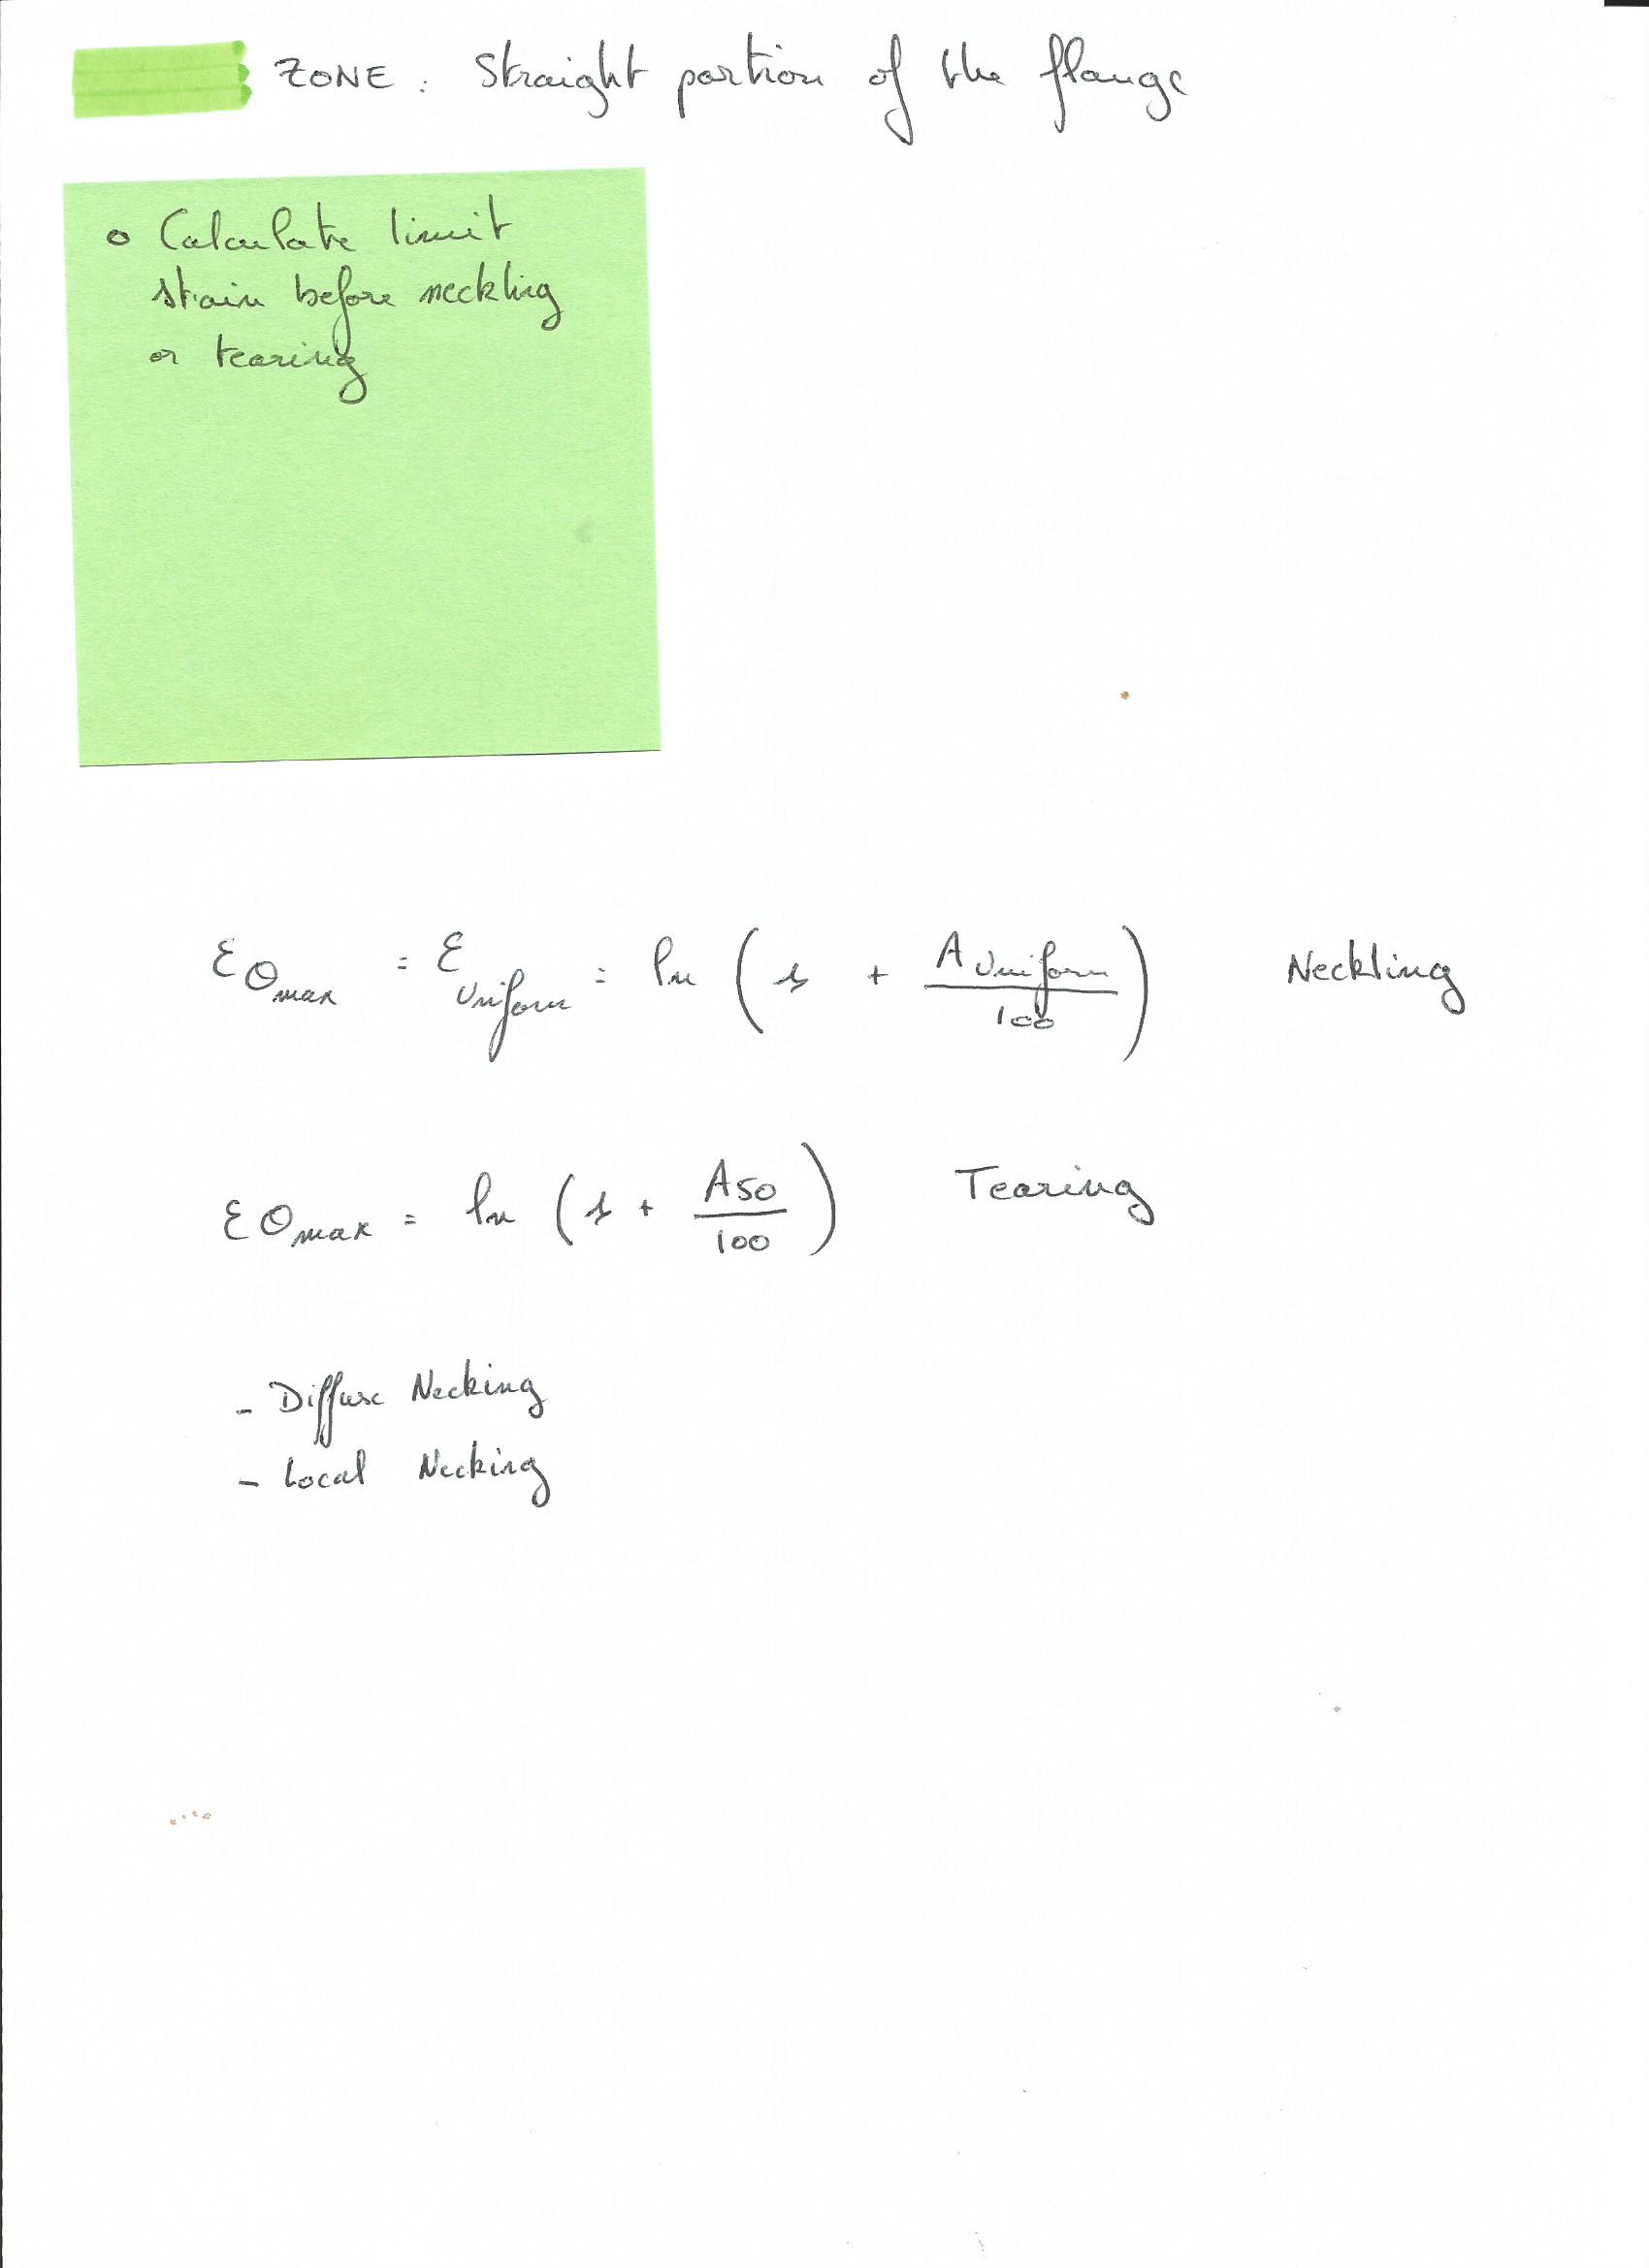 ZONE : Straight portion of the flange
o Calculate limit
stain before neckling
or tearing
εθmax = εUniform = ln ( 1 + AUniform / 100 ) Neckling
εθmax = ln ( 1 + A50 / 100 ) Tearing
- Diffuse Necking
- Local Necking